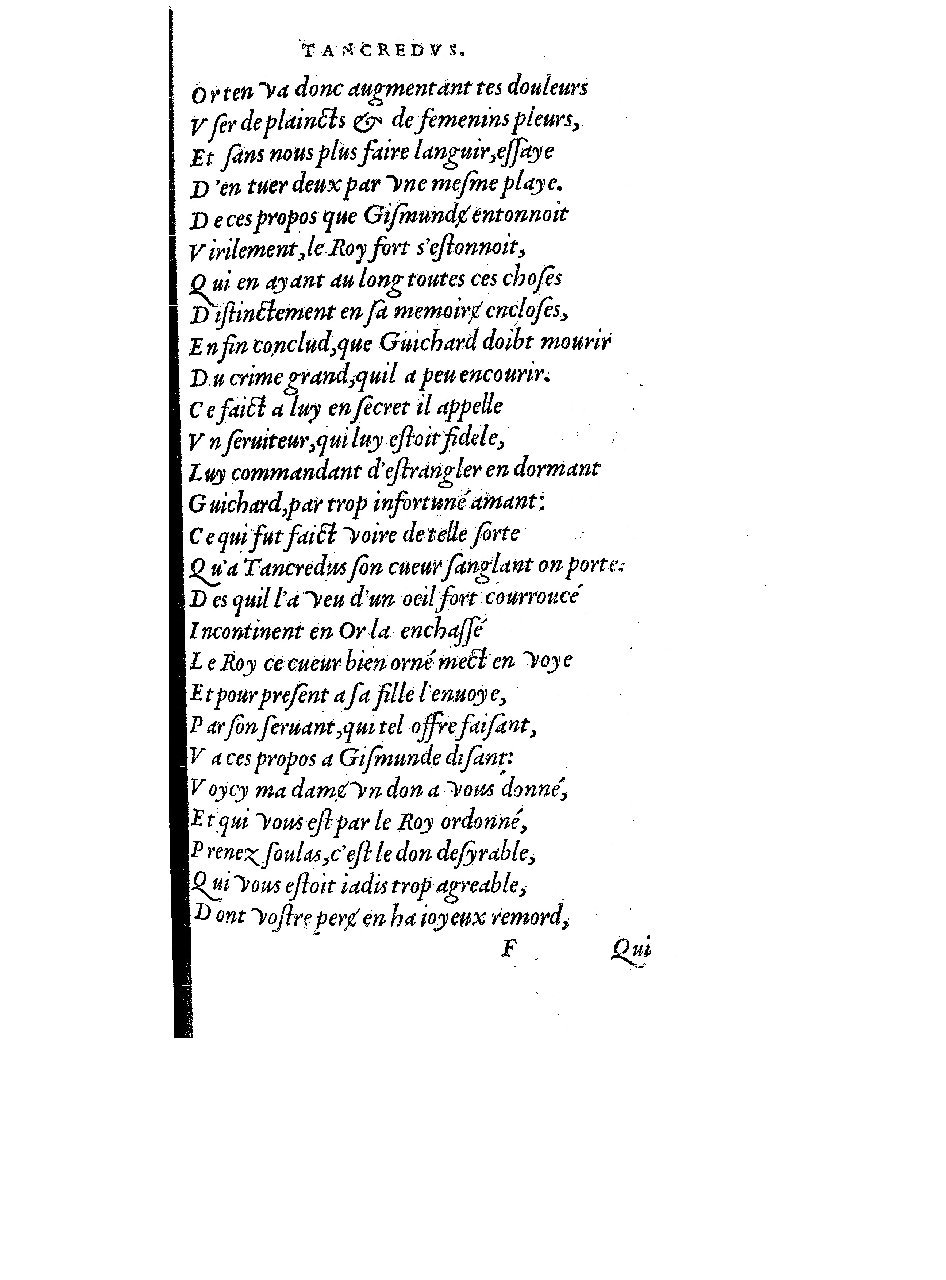 TANCREDVS.
Or ten va donc augmentant tes douleurs
Vſer de plaincts & de femenins pleurs,
Et ſans nous plus faire languir, eſſaye
D'en tuer deux par vne meſme playe.
De ces propos que Giſmundɇ entonnoit
Virilement, le Roy fort s'eſtonnoit,
Qui en ayant au long toutes ces choſes
Diſtinctement en ſa memoirɇ encloſes,
En fin conclud, que Guichard doibt mourir
Du crime grand, quil a peu encourir.
Ce faict a luy en ſecret il appelle
Vn ſeruiteur, qui luy eſtoit fidele,
Luy commandant d'eſtrangler en dormant
Guichard, par trop infortuné amant:
Ce qui fut faict voire de telle ſorte
Qu'a Tancredus ſon cueur ſanglant on porte.
Des quil l'a veu d'un oeil fort courroucé
Incontinent en Or la enchaſſé
Le Roy ce cueur bien orné mect en voye
Et pour preſent a ſa fille l'enuoye,
Par ſon ſeruant, qui tel offre faiſant,
Va ces propos a Giſmunde diſant:
Voycy ma damɇ vn don a vous donné,
Et qui vous eſt par le Roy ordonné,
Prenez ſoulas, c'eſt le don deſyrable,
Qui vous eſtoit iadis trop agreable,
Dont voſtre perɇ en ha ioyeux remord,
F Qui